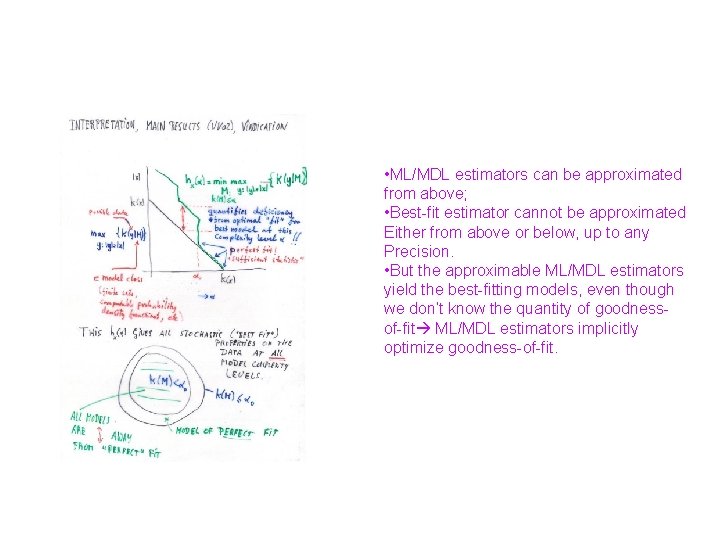 INTERPRETATION, MAIN RESULTS (VV02), VINDICATION
|x|
h_x(α) = min max {K(y|M)}
M, y: h_y(α)≤h_x(α)
K(M)≤α
K(x)
quantifies deficiency
from optimal "fit" for
best model at this
complexity level α!
possible data
max {K(y|M)}
perfect fit!
"sufficient statistic"
∈ model class
(finite sets,
computable probability
density functions, etc)
α₀
K(x)
→α
THIS h_x(α) GIVES ALL STOCHASTIC ("BEST FIT")
PROPERTIES ON THE
DATA AT ALL
MODEL COMPLEXITY
LEVELS.
K(M)<α₀
K(M)≤α₀
ALL MODELS
ARE AWAY
FROM "PERFECT" FIT
MODEL OF PERFECT FIT
•ML/MDL estimators can be approximated
from above;
•Best-fit estimator cannot be approximated
Either from above or below, up to any
Precision.
•But the approximable ML/MDL estimators
yield the best-fitting models, even though
we don't know the quantity of goodness-
of-fit→ ML/MDL estimators implicitly
optimize goodness-of-fit.